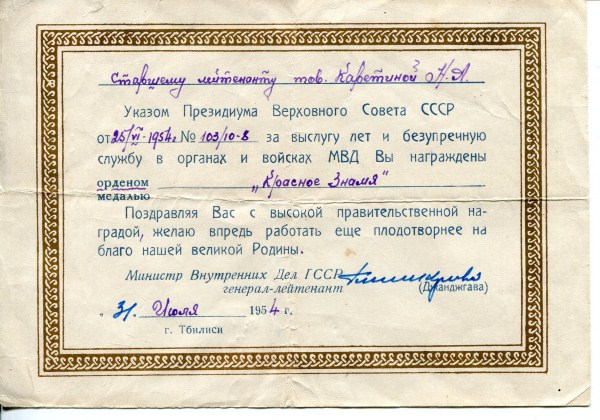 Старшему лейтенанту тов. Каретиной Н.А.
Указом Президиума Верховного Совета СССР
от 25/VI-1954г № 103/10-8 за выслугу лет и безупречную
службу в органах и войсках МВД Вы награждены
орденом „Красное Знамя"
медалью
Поздравляя Вас с высокой правительственной на-
градой, желаю впредь работать еще плодотворнее на
благо нашей великой Родины.
Министр Внутренних Дел ГССР
генерал-лейтенант (Джанджгава)
„31" Июля 1954 г.
г. Тбилиси